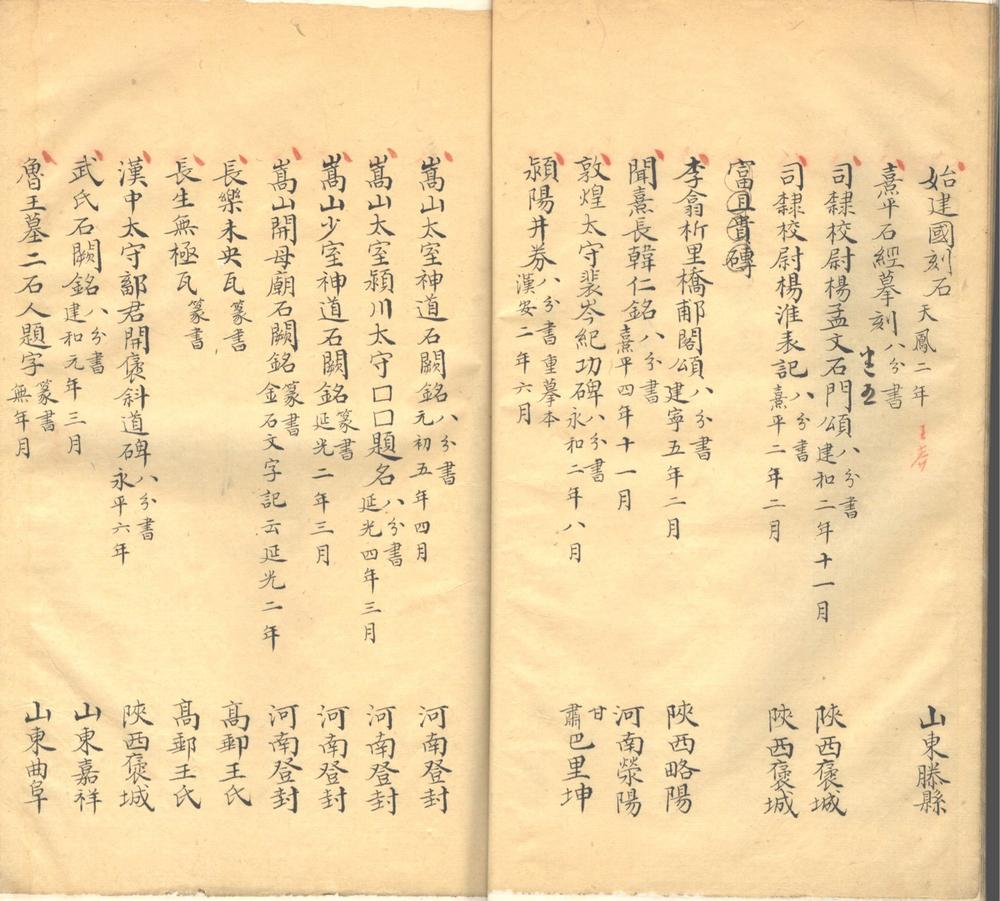 始建國刻石 天鳳二年 山東滕縣
熹平石經摹刻 八分書
司隸校尉楊孟文石門頌 八分書 建和二年十一月 陝西褒城
司隸校尉楊淮表記 八分書 熹平二年二月 陝西褒城
富且貴磚
李翕析里橋郙閣頌 八分書 建寧五年二月 陝西略陽
聞熹長韓仁銘 八分書 熹平四年十一月 河南滎陽
敦煌太守裴岑紀功碑 八分書 永和二年八月 甘肅巴里坤
潁陽井券 八分書 重摹本 漢安二年六月
嵩山太室神道石闕銘 八分書 元初五年四月 河南登封
嵩山太室潁川太守口口題名 八分書 延光四年三月 河南登封
嵩山少室神道石闕銘 篆書 延光二年三月 河南登封
嵩山開母廟石闕銘 篆書 金石文字記云延光二年 河南登封
長樂未央瓦 篆書 高郵王氏
長生無極瓦 篆書 高郵王氏
漢中太守鄐君開褒斜道碑 八分書 永平六年 陝西褒城
武氏石闕銘 八分書 建和元年三月 山東嘉祥
魯王墓二石人題字 篆書 無年月 山東曲阜